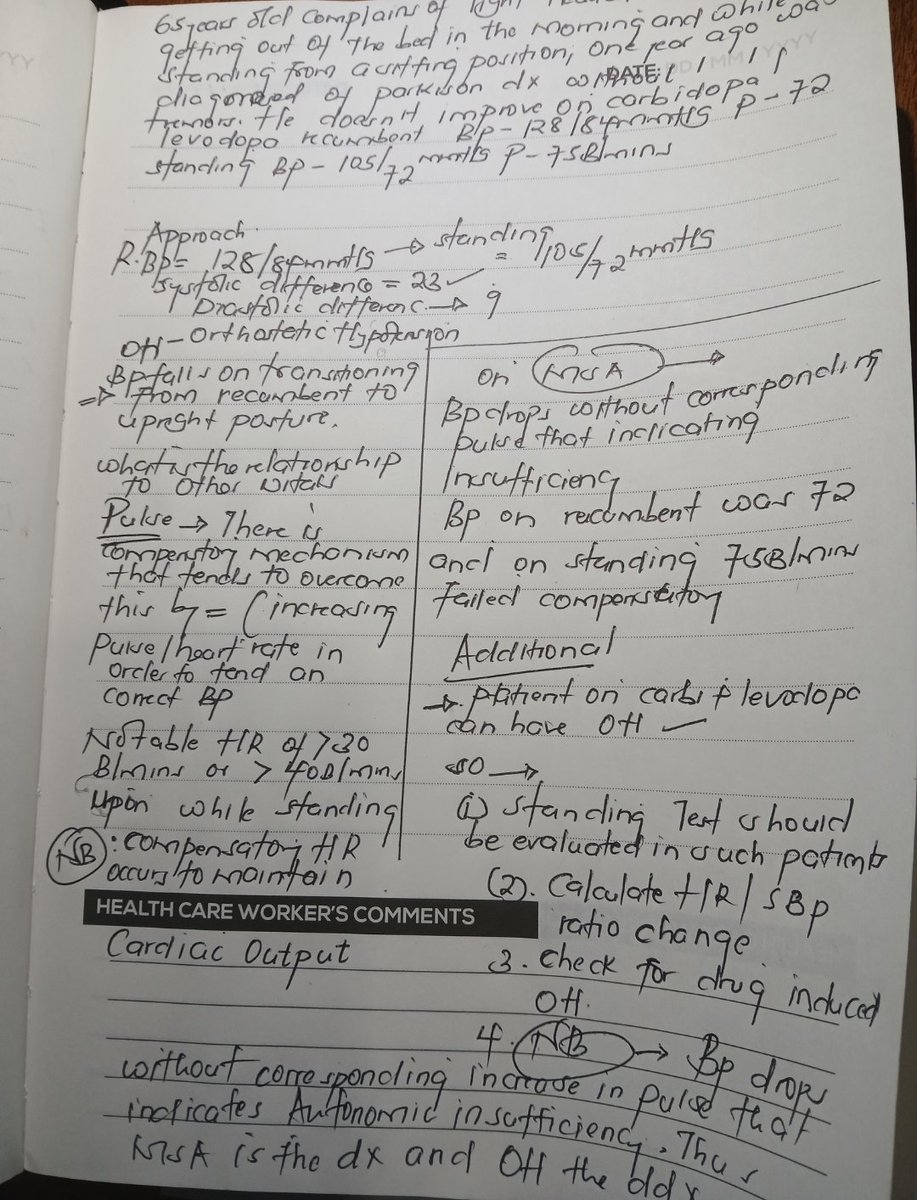 65 years old complains of light
getting out of the bed in the morning and while
standing from a sitting position, one year ago
diagonized of parkison dx
DATE: DD / MM / YYYY
tremors. He doesn't improve on carbidopa
levodopa recumbent BP - 128/84mmHg P - 72
standing BP - 105/72 mmHg P - 75B/mins
Approach
R.BP = 128/84mmHg → standing = 105/72 mmHg
Systolic difference = 23 ✓
Diastolic differenc. →
OH - Orthostatic Hypotension
BP falls on transitioning
⇒ from recumbent to
upright posture.
what is the relationship
to other vitals
Pulse → There is
compenstory mechanism
that tends to overcome
this by = (increasing
Pulse/heart rate in
order to tend on
corect BP
Notable HR of >30
B/mins or > 40B/mins
Upon while standing
NB : compensatory HR
occurs to maintain
on MSA →
BP drops without corresponding
pulse that indicating
Insufficiency
BP on recumbent was 72
and on standing 75B/mins
failed compensatory
Additional
→ patient on carbi + levodopa
can have OH ✓
so →
(1) standing Test should
be evaluated in such patients
(2). Calculate HR/SBP
ratio change
3. check for drug induced
OH.
HEALTH CARE WORKER'S COMMENTS
Cardiac Output
4. NB → BP drops
without corresponding increase in pulse that
indicates Autonomic insufficiency. Thus
MSA is the dx and OH the ddx